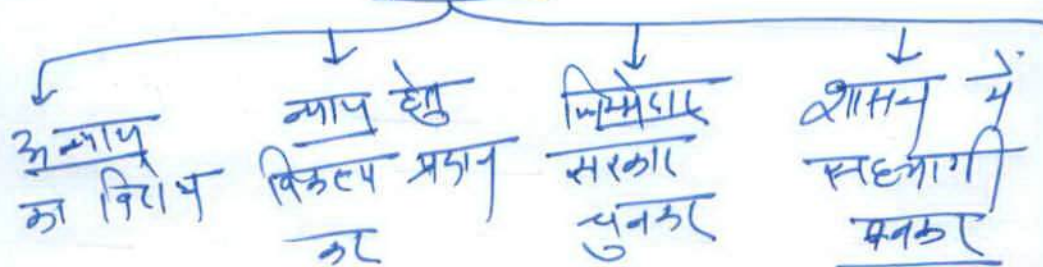 अन्याय
का विरोध
न्याय हेतु
विकल्प प्रदान
कर
जिम्मेदार
सरकार
चुनकर
शासन में
सहभागी
बनकर